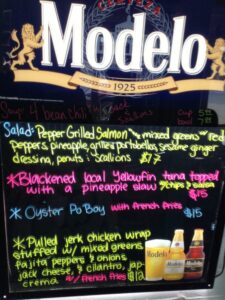 CERVEZA
Modelo
1925
Soup 4 bean chili
Cup 5
Bowl 7
Salad: Pepper Grilled Salmon mixed greens red
peppers, pineapple, grilled portobellos, sesame ginger
dressing, peanuts & scallions $17
*Blackened local Yellowfin tuna topped
with a pineapple slaw chips & salsa
$15
* Oyster Po Boy with french fries $15
*Pulled jerk chicken wrap
stuffed w/ mixed greens,
fajita peppers & onions,
jack cheese, & cilantro, jap
crema w/ french fries $12